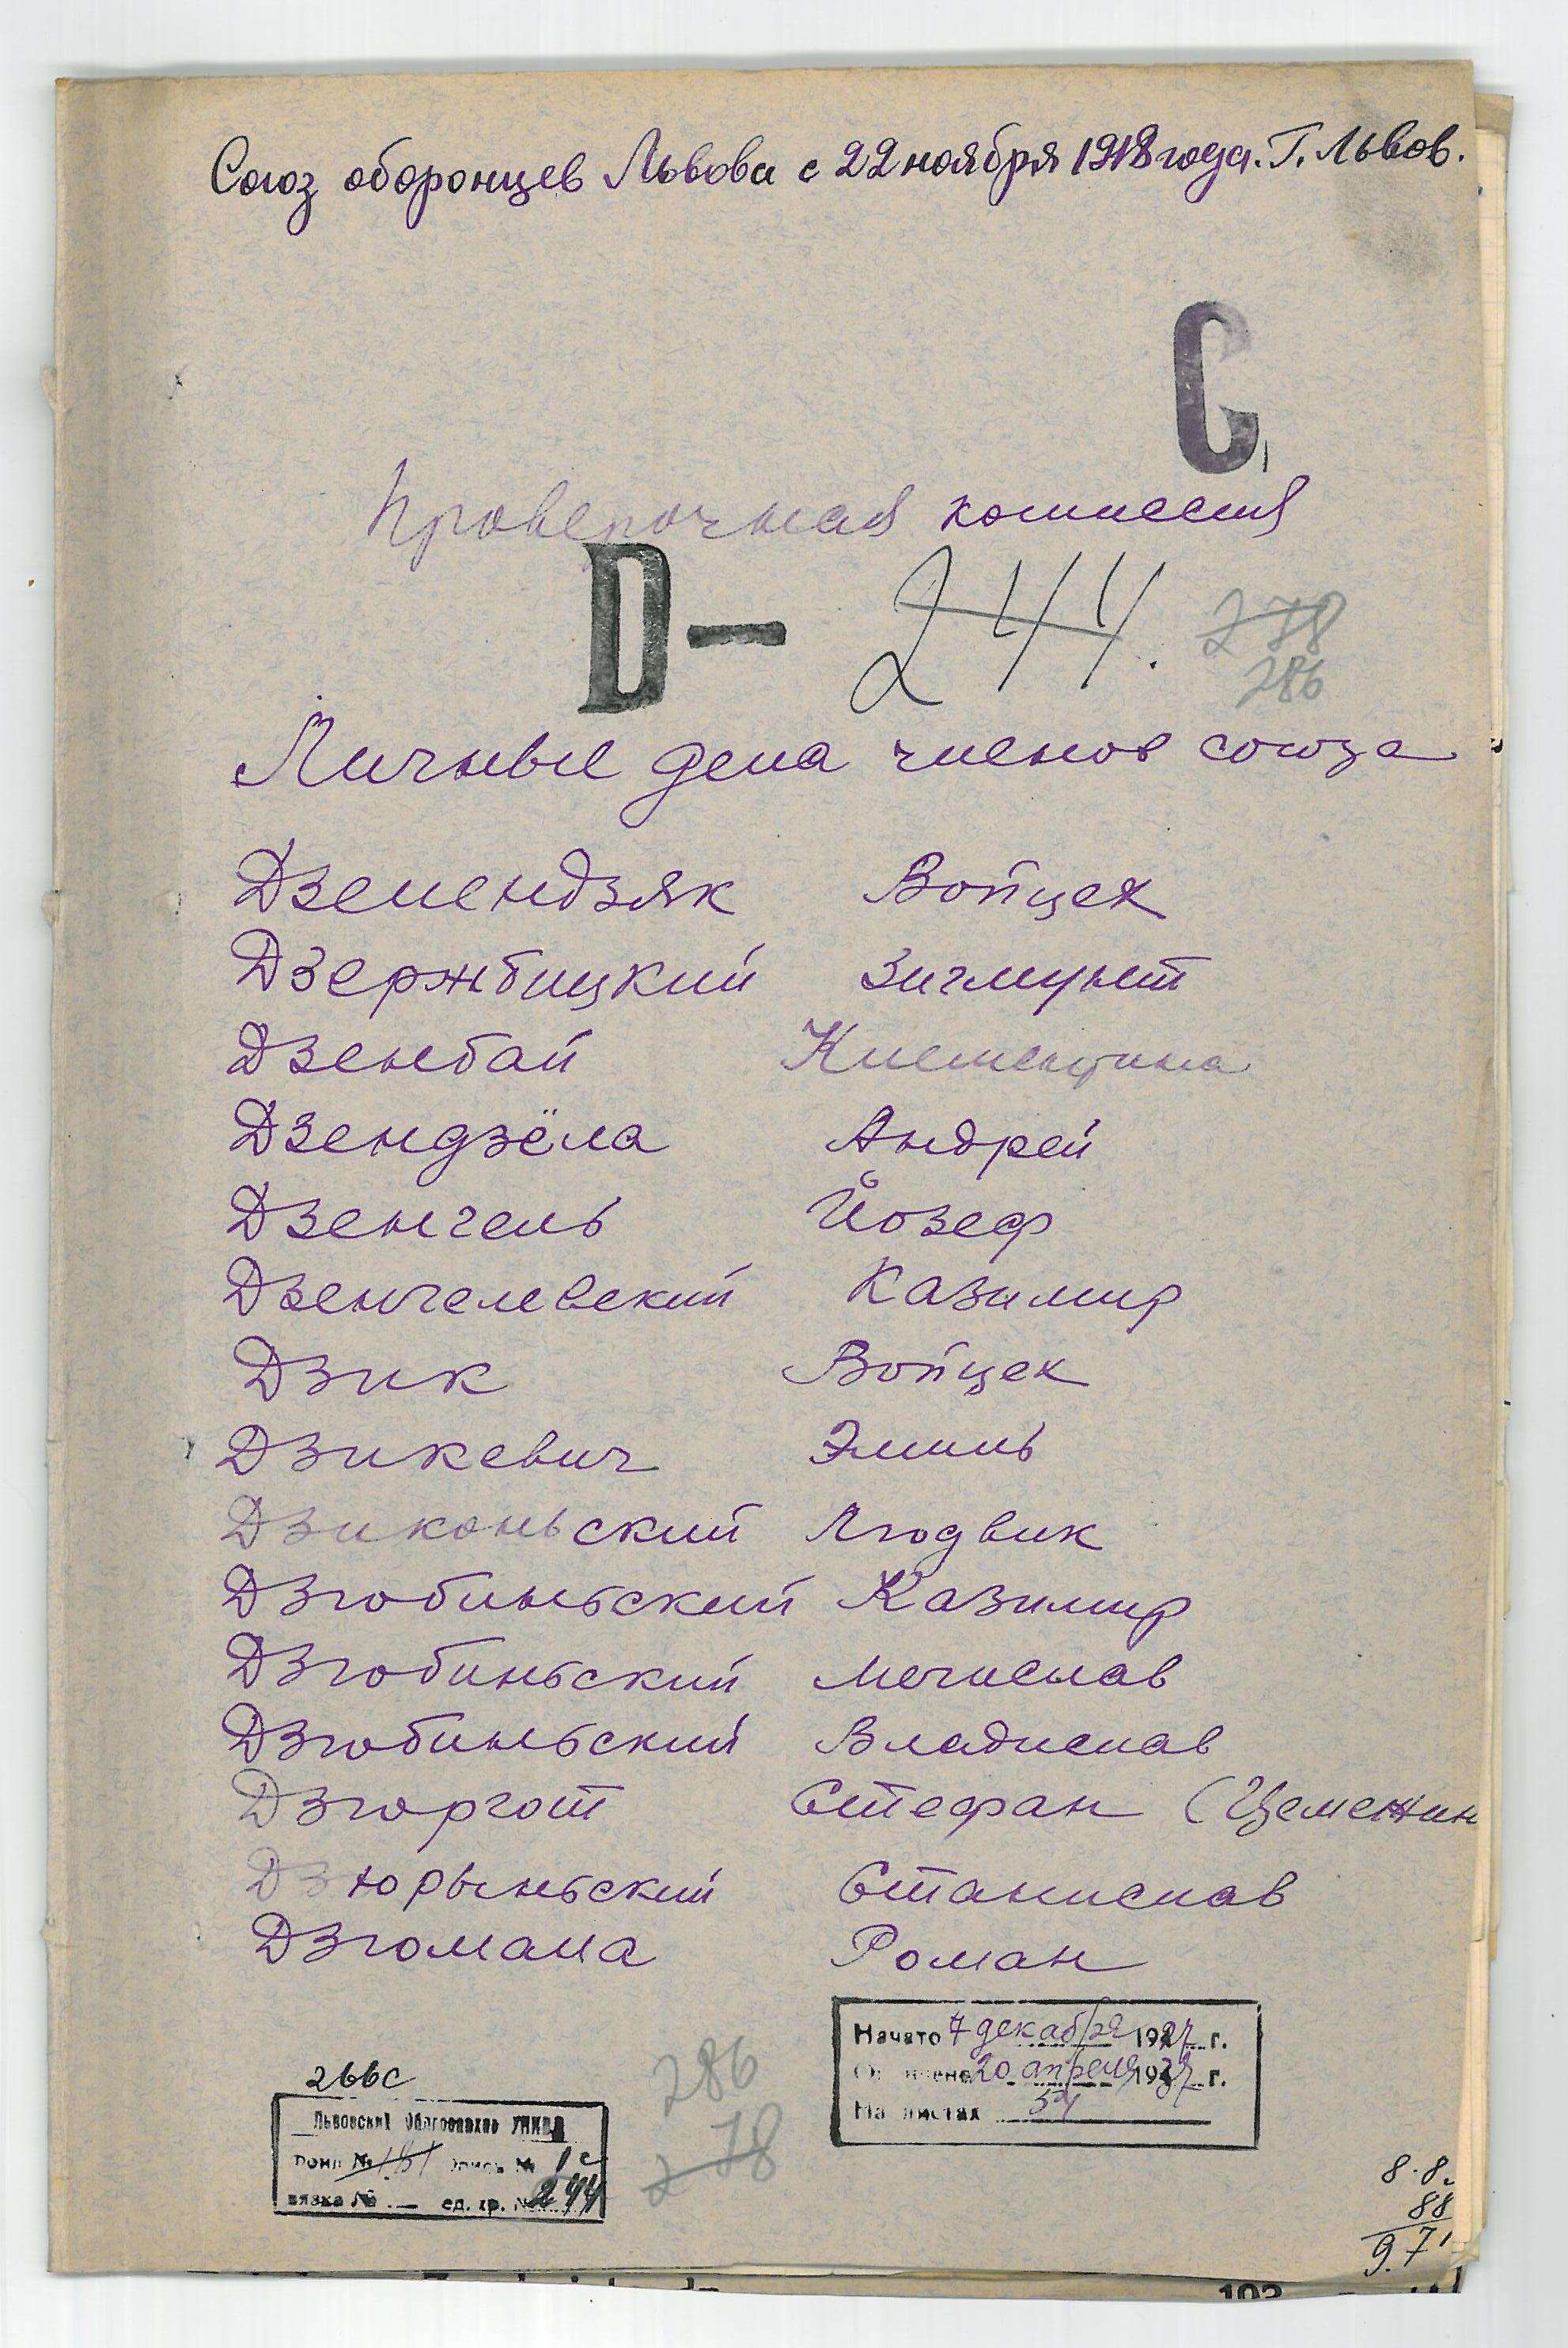 Союз оборонцев Львова с 22 ноября 1918 года. Г. Львов.
С
Проверочная комиссия
D— 244. 278
286
Личные дела членов союза
Дзелендзяк Войцех
Дзержбицкий Зигмунт
Дзенбай Клементина
Дзендзёла Андрей
Дзенгель Йозеф
Дзенгелевский Казимир
Дзик Войцех
Дзикевич Эмиль
Дзиконьский Людвик
Дзюбиньский Казимир
Дзюбиньский Мечислав
Дзюбиньский Владислав
Дзюргот Стефан
Дзюрыньский Станислав
Дзюмала Роман
Начато 7 декабря 1927 г.
20 апреля 1937 г.
На листах 54
266с
286
278
Львовский Облгосархив УНКВД
Фонд № 151 Опись № 1с
вязка № — ед. хр. № 244
8.8.
88
9.71